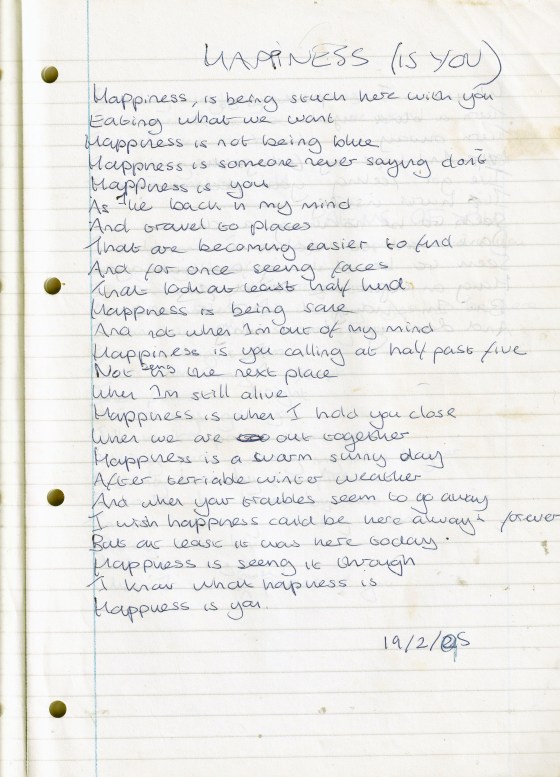 HAPPINESS (IS YOU)
Happiness, is being stuck here with you
Eating what we want
Happiness is not being blue
Happness is someone never saying dont
Happness is you
As I lie back in my mind
And travel to places
That are becoming easier to find
And for once seeing faces
That look at least half kind.
Happness is being sane
And not when Im out of my mind
Happiness is you calling at half past five
Not being in the next place
When Im still alive
Happiness is when I hold you close
When we are out together
Happness is a warm sunny day
After terriable winter weather
And when your troubles seem to go away
I wish happness could be here always forever
But at least it was here today.
Happness is seeing it through
I know what hapness is
Happness is you.
19/2/